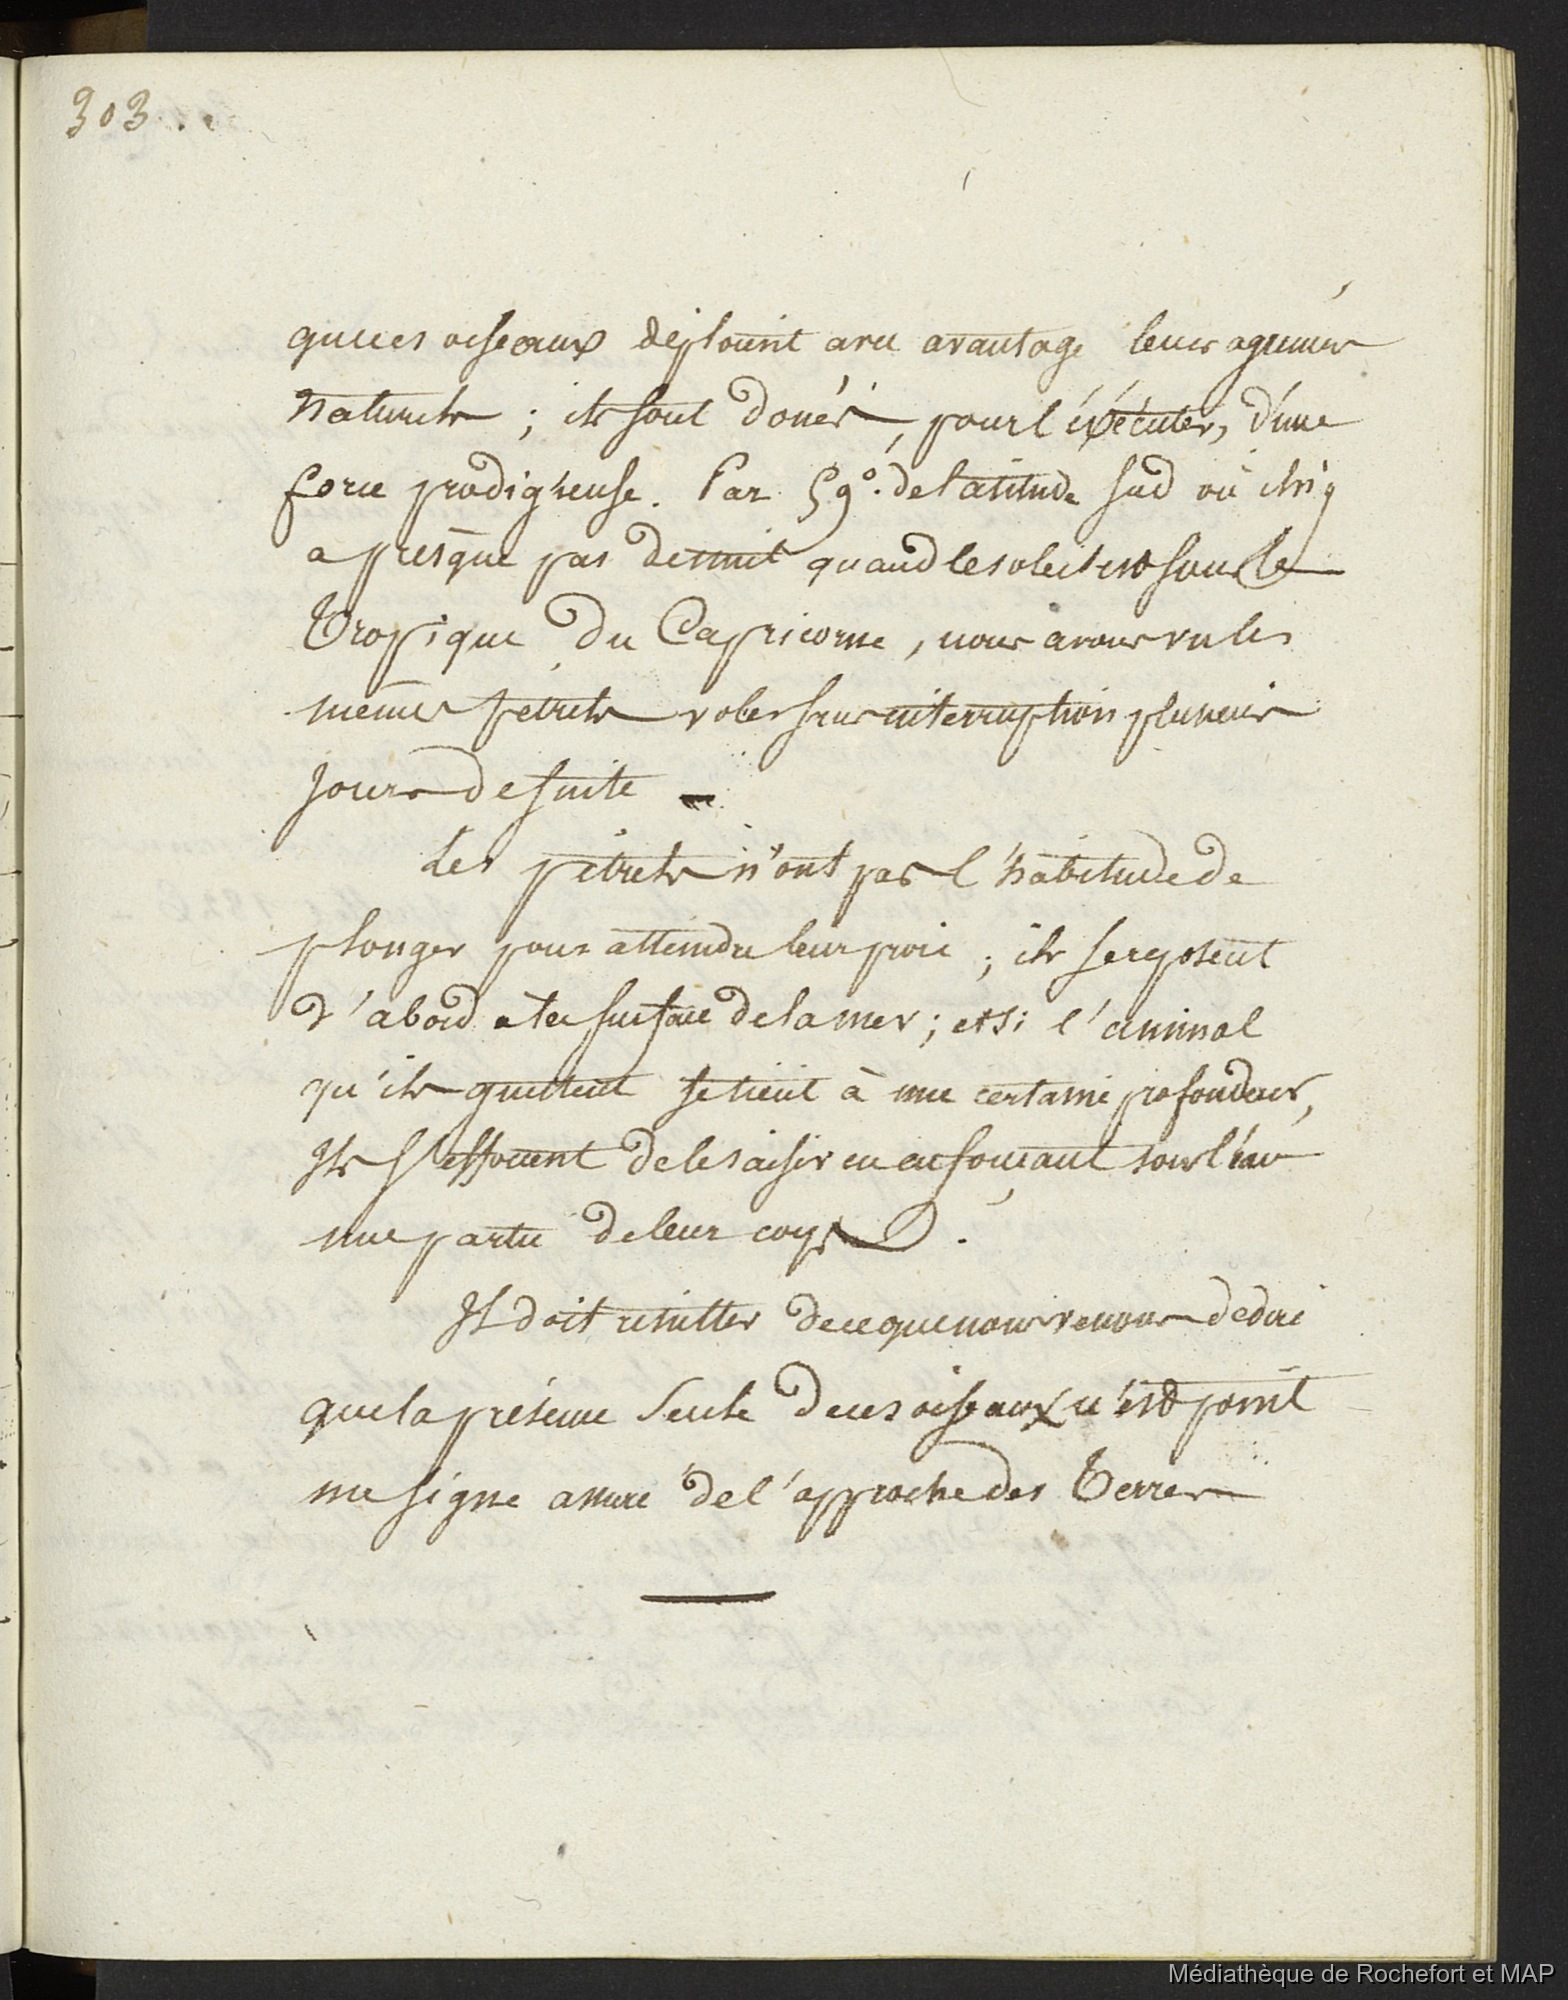 303..
que ces oiseaux déploient avec avantage leurs agrémens
naturels ; ils sont doués, pour l'éxécuter, d'une
force prodigieuse. Par 59°. de latitude sud où il n'y
a presque pas de nuit quand le soleil est sous le
Tropique du Capricorne, nous avons vu les
mêmes pétrels voler sans interruption plusieurs
jours de suite –
Les pétrels n'ont pas l'habitude de
plonger pour atteindre leur proie ; ils se reposent
d'abord a la surface de la mer ; et si l'animal
qu'ils guettent se tient à une certaine profondeur,
Ils s'efforcent de le saisir en enfonçant sous l'eau
une partie de leur corps.
Il doit résulter de ce que nous venons de dire
que la présence seule de ces oiseaux n'est point
une signe assuré de l'approche des Terres
Médiathèque de Rochefort et MAP